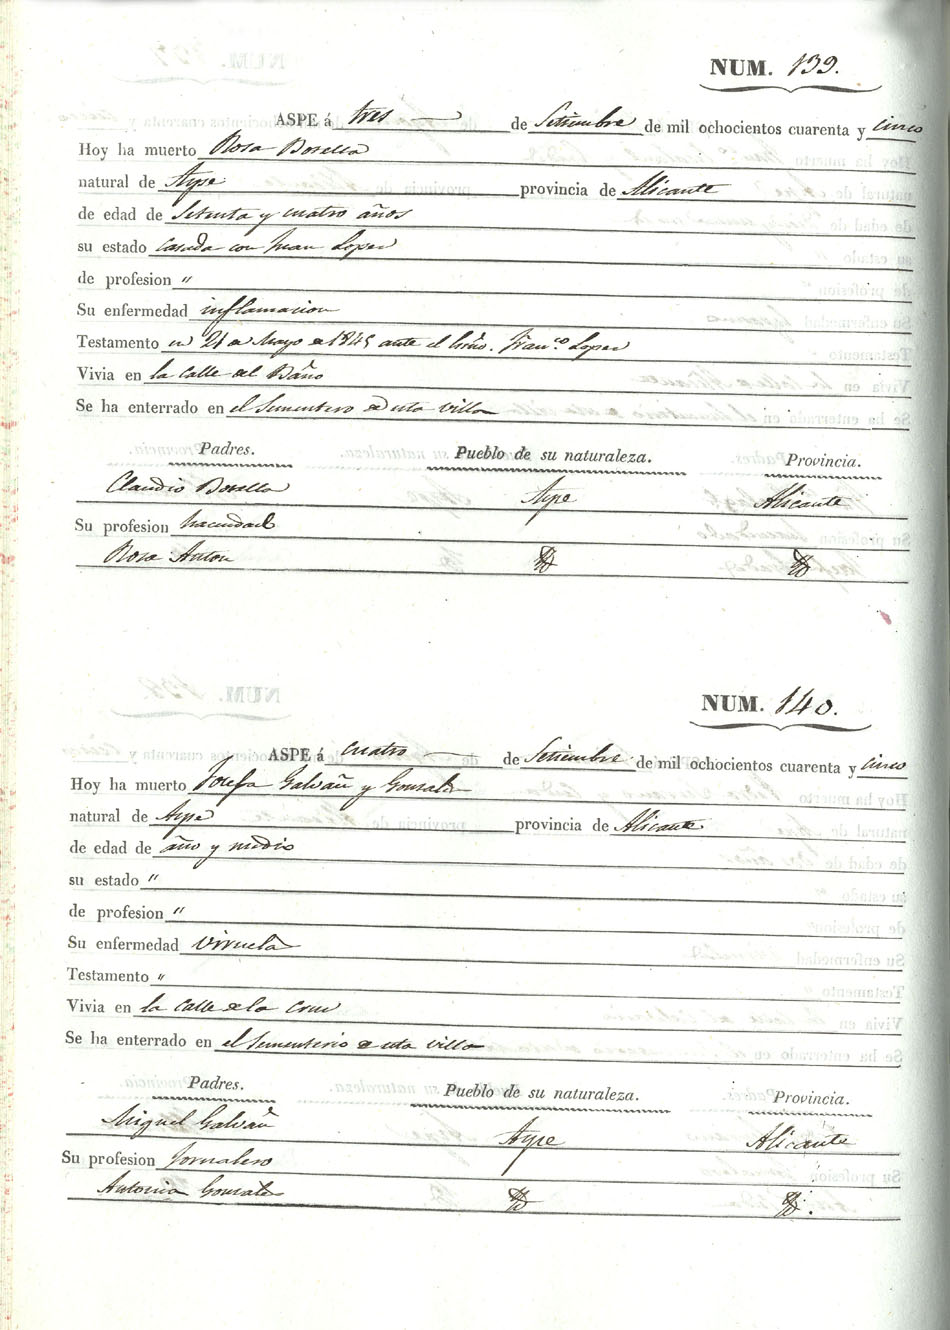 NUM. 139.
ASPE á tres de Setiembre de mil ochocientos cuarenta y cinco
Hoy ha muerto Rosa Botella
natural de Aspe provincia de Alicante
de edad de Setenta y cuatro años
su estado casada con Juan Lopez
de profesion "
Su enfermedad inflamacion
Testamento en 21 de Mayo de 1845 ante el Esño. Fran.co Lopez
Vivia en la calle del Baño
Se ha enterrado en el Sementero de esta villa
Padres. Pueblo de su naturaleza. Provincia.
Claudio Botella Aspe Alicante
Su profesion hacendado
Rosa Anton
NUM. 140.
ASPE á cuatro de Setiembre de mil ochocientos cuarenta y cinco
Hoy ha muerto Josefa Galvañ y Gonzalez
natural de Aspe provincia de Alicante
de edad de año y medio
su estado "
de profesion "
Su enfermedad virruela
Testamento "
Vivia en la calle de la Cruz
Se ha enterrado en el Sementerio de esta villa
Padres. Pueblo de su naturaleza. Provincia.
Miguel Galvañ Aspe Alicante
Su profesion Jornalero
Antonia Gonzalez